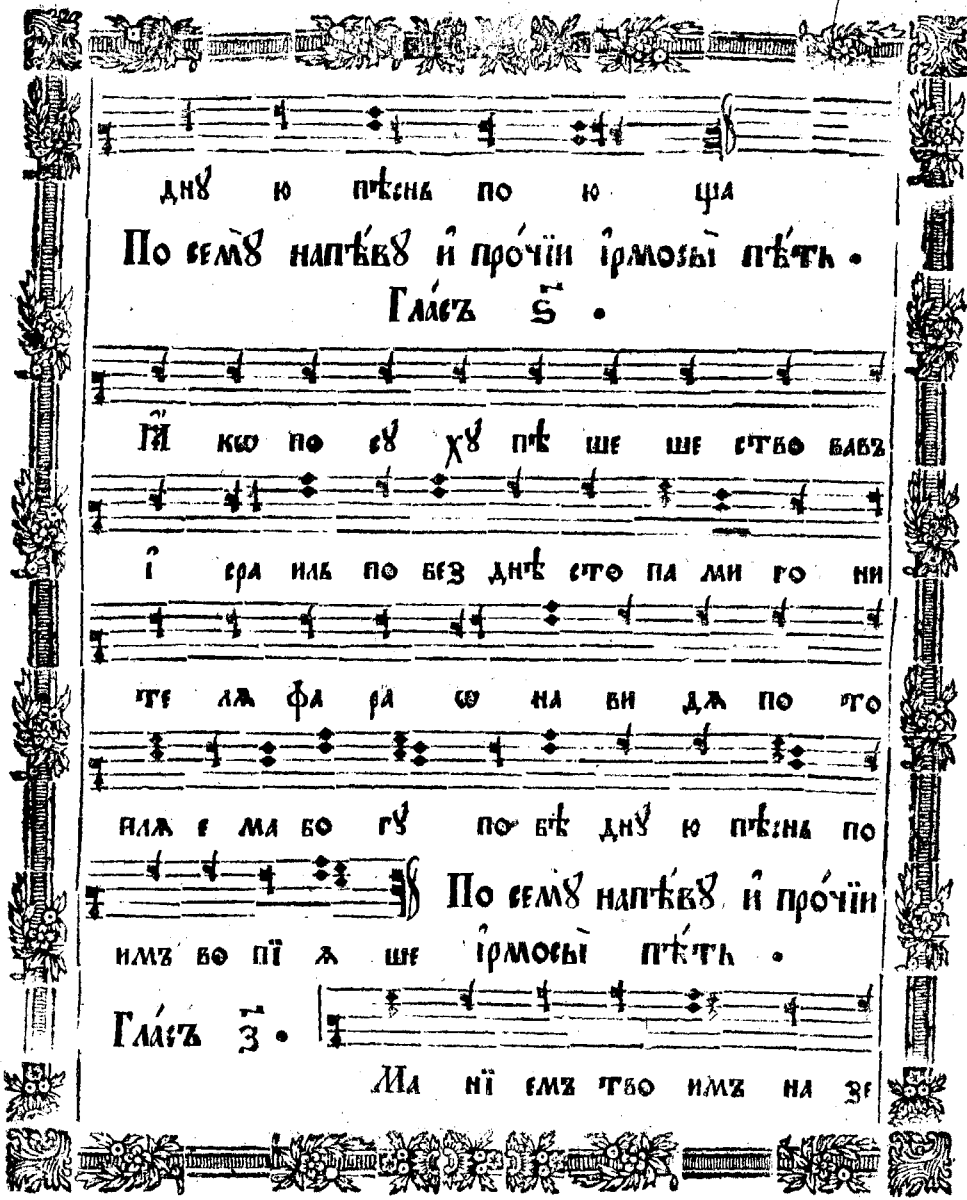 днꙋ ю пѣснь по ю ща
По семꙋ̀ напѣ́вꙋ и҆ про́чїи і҆рмосы̀ пѣ́ть .
Гла́съ ѕ҃ .
Ꙗ҆́ кѡ по сꙋ хꙋ пѣ ше ше ство вавъ
і҆ сра иль по без днѣ сто па ми го ни
те лѧ фа ра ѡ на ви дѧ по то
плѧ е ма бо гꙋ по бѣ днꙋ ю пѣснь по
имъ во пїѧ ше
По семꙋ̀ напѣ́вꙋ и҆ про́чїи
і҆рмосы̀ пѣ́ть .
Гла́съ з҃ .
Ма нї емъ тво имъ на зе